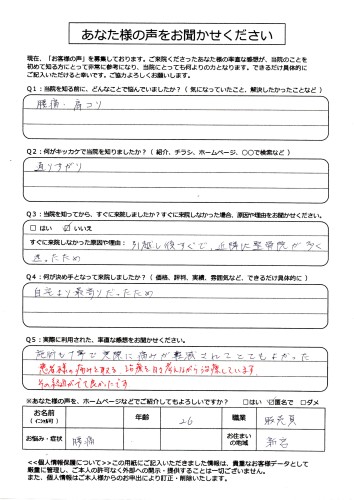 あなた様の声をお聞かせください
現在、「お客様の声」を募集しております。ご来院くださったあなた様の率直な感想が、当院のことを
初めて知る方にとって非常に参考になり、当院にとっても何よりの力となります。できるだけ具体的に
ご記入いただけると幸いです。ご協力よろしくお願いします。
Q1:当院を知る前に、どんなことで悩んでいましたか?( 気になっていたこと、解決したかったことなど )
腰痛・肩コリ
Q2:何がキッカケで当院を知りましたか?( 紹介、チラシ、ホームページ、○○で検索など )
通りすがり
Q3:当院を知ってから、すぐに来院しましたか?すぐに来院しなかった場合、原因や理由をお聞かせください。
□ はい ☑ いいえ
すぐに来院しなかった原因や理由: 引越し後すぐで、近隣に整骨院が多く
迷ったため
Q4:何が決め手となって来院しましたか?( 価格、評判、実績、雰囲気など、できるだけ具体的に )
自宅より最寄りだったため
Q5:実際に利用された、率直な感想をお聞かせください。
施術も丁寧で実際に痛みが軽減されてとてもよかった
患者様の痛みを取る治療を日々考えながら治療しています。
その結果がでて良かったです
※あなた様の声を、ホームページなどでご紹介してもよろしいですか? □はい ☑匿名で □ダメ
お名前
(ｲﾆｼｬﾙ可)
年齢
26
職業
販売員
お悩み・症状
腰痛
お住まい
の地域
新宮
<<個人情報保護について>>この用紙にご記入いただきました情報は、貴重なお客様データとして
厳重に管理し、ご本人の許可なく外部への開示・提供することは一切ございません。
また、個人情報はご本人様からのお申出により訂正・削除いたします。